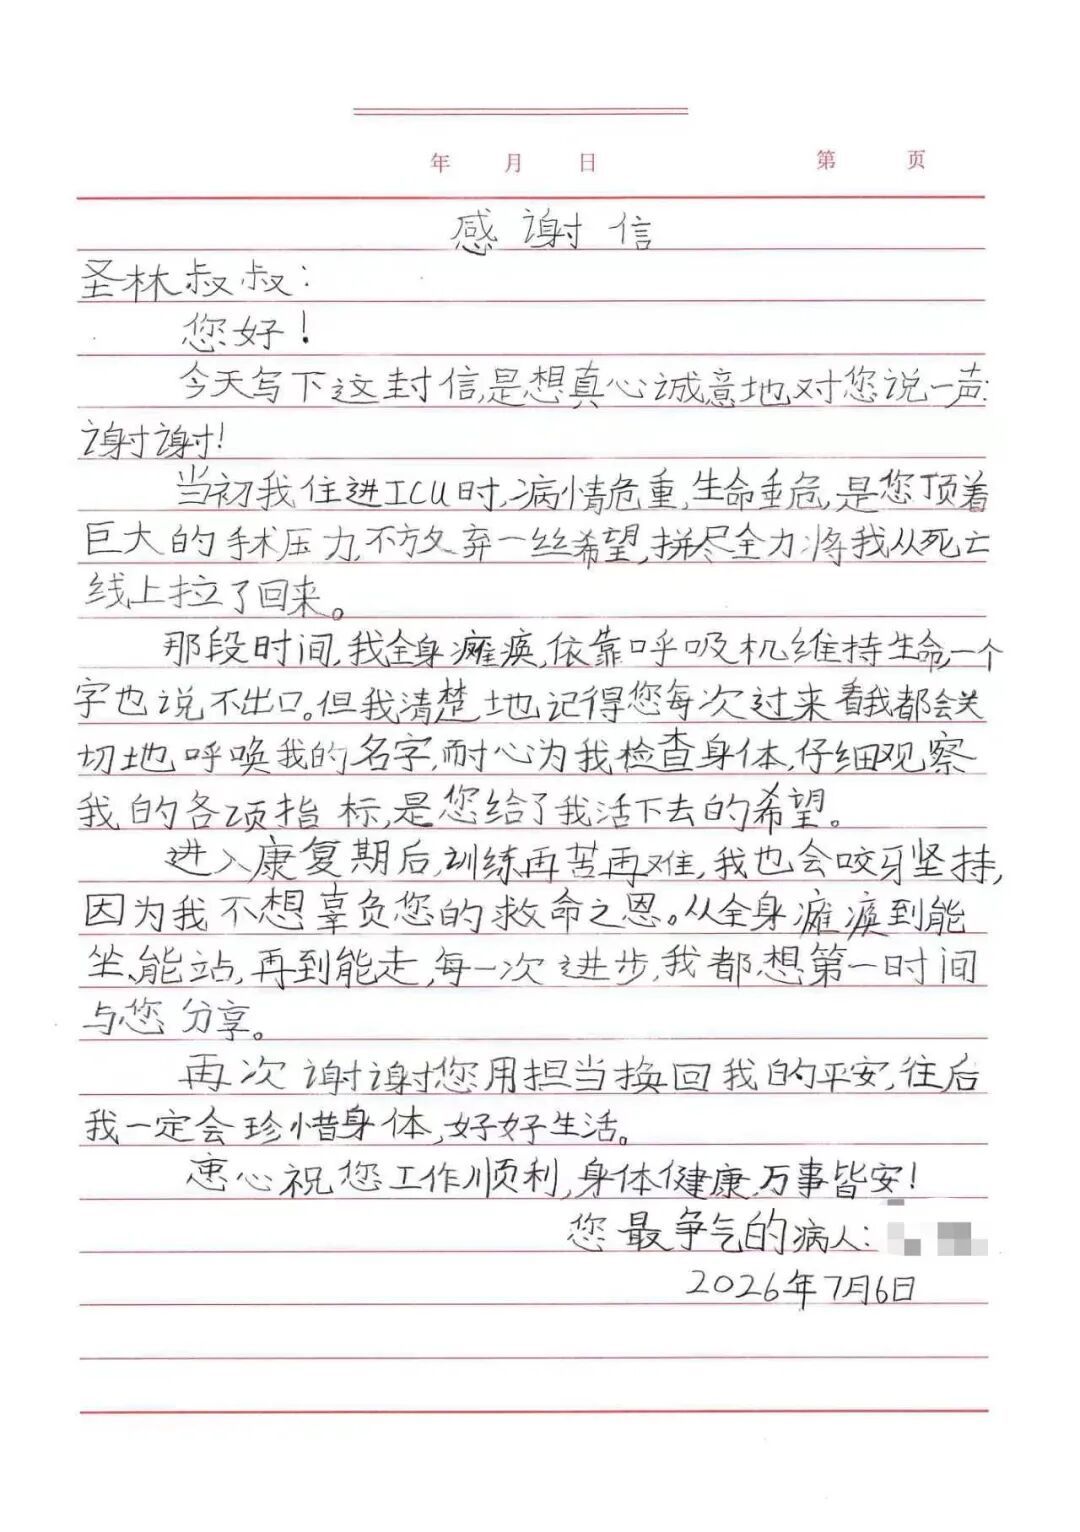 年 月 日 第 页
感谢信
圣林叔叔：
您好！
今天写下这封信,是想真心诚意地对您说一声:
谢谢!
当初我住进ICU时,病情危重,生命垂危,是您顶着
巨大的手术压力,不放弃一丝希望,拼尽全力将我从死亡
线上拉了回来。
那段时间,我全身瘫痪,依靠呼吸机维持生命,一个
字也说不出口。但我清楚地记得您每次过来看我都会关
切地呼唤我的名字,耐心为我检查身体,仔细观察
我的各项指标,是您给了我活下去的希望。
进入康复期后,训练再苦再难,我也会咬牙坚持,
因为我不想辜负您的救命之恩。从全身瘫痪到能
坐、能站,再到能走,每一次进步,我都想第一时间
与您分享。
再次谢谢您用担当换回我的平安,往后
我一定会珍惜身体,好好生活。
衷心祝您工作顺利,身体健康,万事皆安!
您最争气的病人:
2026年7月6日